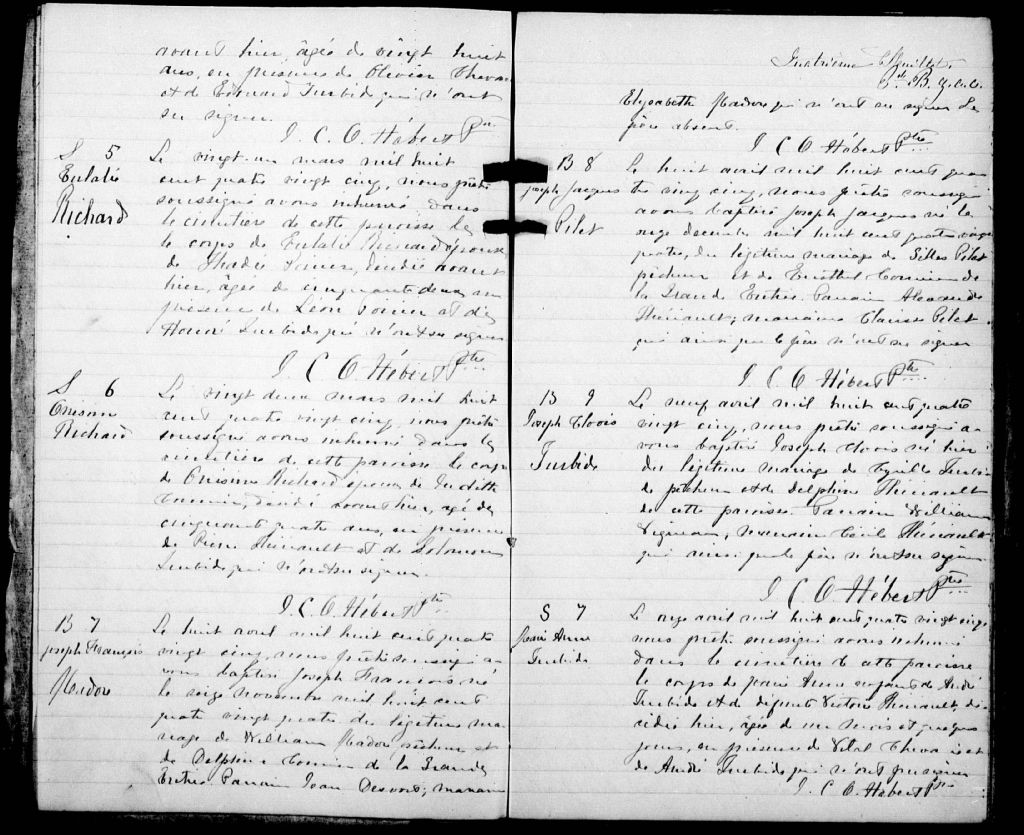 avant hier, âgée de vingt huit
ans, en presence de Olivier
et de Edouard Turbide qui n'ont
su signer.
J. C. O. Hébert Ptre
S 5
Eulalie
Richard
Le vingt-un mars mil huit
cent quatre vingt cinq, nous prêtre
soussigné avons inhumé dans
le cimetière de cette paroisse
le corps de Eulalie Richard épouse
de Thadée Poirier, décédée avant
hier, âgée de cinquante deux
présence de Léon Poirier et de
Honoré Turbide qui n'ont su signer
J. C. O. Hébert Ptre
S 6
Onesime
Richard
Le vingt deux mars mil huit
cent quatre vingt cinq, nous prêtre
soussigné avons inhumé dans le
cimetière de cette paroisse le corps
de Onesime Richard époux de Judith
décédé avant hier, agé de
cinquante quatre ans, en présence
de Pierre Thériault et de Solomon
Turbide qui n'ont su signer.
J. C. O. Hébert Ptre
B 7
Joseph François
Madore
Le huit avril mil huit cent quatre
vingt cinq, nous prêtre soussigné a-
vons baptisé Joseph Francois né
le seize novembre mil huit cent
quatre vingt quatre du légitime ma-
riage de William Madore pêcheur et
de Delphine de la Grande
Entrée. Parrain Jean marraine
Quatrième feuillet
B. J. C. C.
Elysabeth Madore qui n'ont su signer Le
père absent.
J C O Hébert Ptre
B 8
Joseph Jacques
Pilet
Le huit avril mil huit cent qua
tre vingt cinq, nous prêtre soussigné
avons baptisé Joseph Jacques né le
onze decembre mil huit cent quatre vingt
quatre, du légitime mariage de Gilles Pilet
pêcheur et de de
la Grande Entrée. Parrain Alexandre
Thériault; marraine Clarisse Pilet
qui ainsi que le père n'ont su signer
J. C. O. Hébert Ptre
B 9
Joseph Clovis
Turbide
Le neuf avril mil huit cent quatre
vingt cinq, nous prêtre soussigné a-
vons baptisé Joseph Clovis né hier
du légitime mariage de Cyrille Turbi-
de pêcheur et de Delphine Thériault
de cette paroisse. Parrain William
Vigneau, marraine Cécile Thériault
qui ainsi que le père n'ont su signer
J. C. O. Hébert Ptre
S 7
Marie Anne
Turbide
Le onze avril mil huit cent quatre vingt cinq
nous prêtre soussigné avons inhumé
dans le cimetière de cette paroisse
le corps de Marie Anne enfant de André
Turbide et de défunte Victoire Thériault, dé-
cédée hier, âgée de un mois et quelques
jours, en présence de Vital et
de André Turbide qui n'ont pu signer
J. C. O. Hébert Ptre